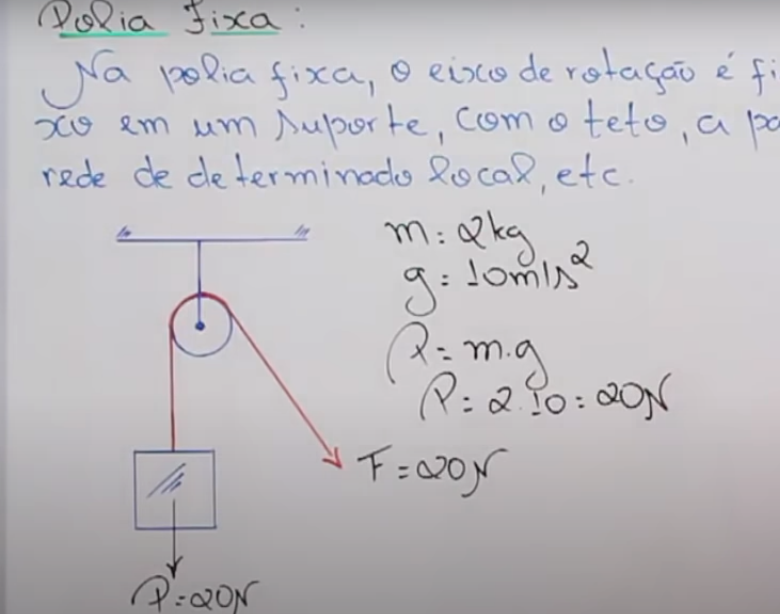 Polia fixa:
Na polia fixa, o eixo de rotação é fi
xo em um suporte, com o teto, a pa
rede de determinado local, etc.
m: 2kg
g: 10m/s²
P = m.g
P = 2.10 = 20N
F = 20N
P = 20N